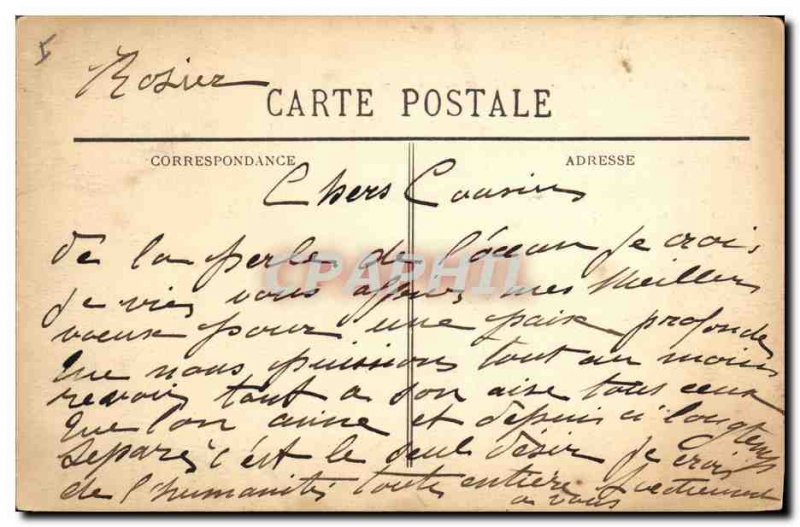 Rosier
CARTE POSTALE
CORRESPONDANCE
ADRESSE
Chers Cousins
de la perle de l'océan je crois
je viens vous offrir mes meilleurs
voeux pour une paix profonde
que nous puissions tout au moins
revoir tout a son aise tous ceux
que l'on aime et depuis si longtemps
separés c'est le seul désir je crois
de l'humanité toute entière
a vous
CPAPHIL